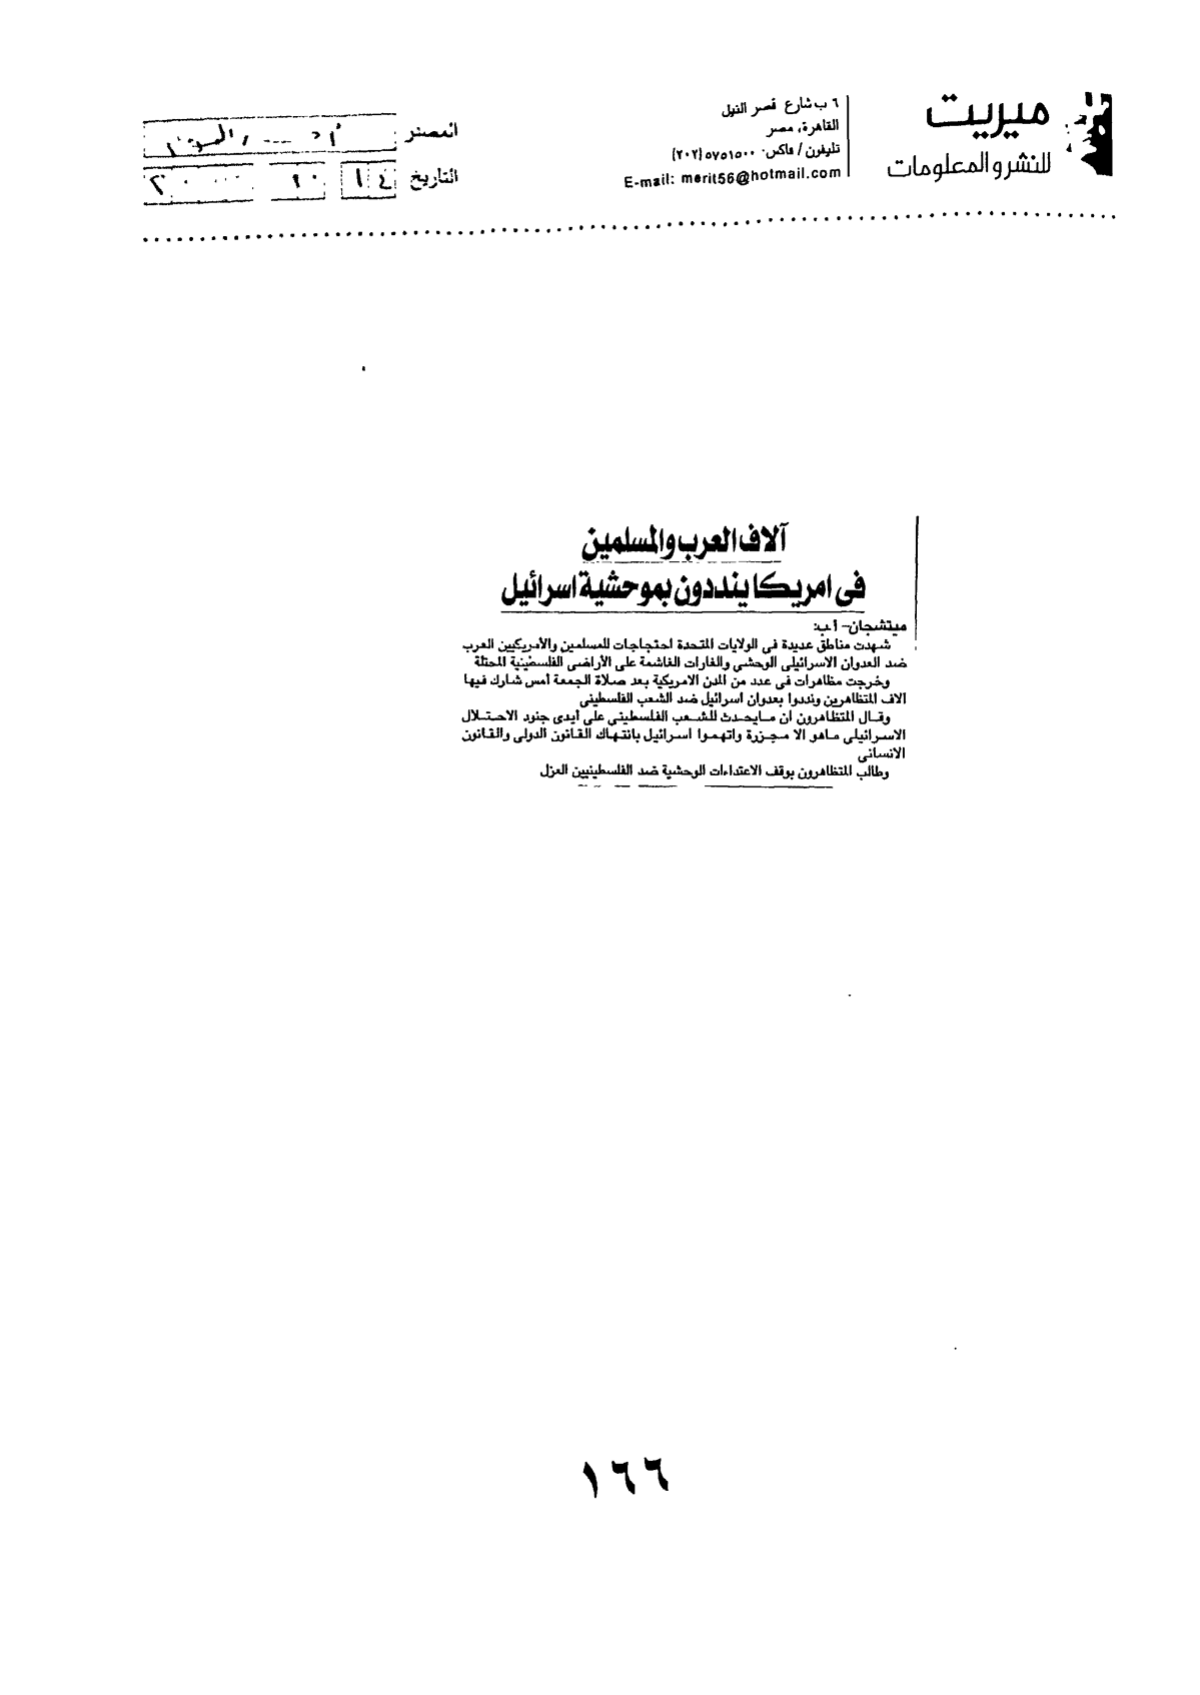 ميريت
للنشر والمعلومات
٦ ب شارع قصر النيل
القاهرة، مصر
تليفون / فاكس: ٥٧٥١٥٠٠ (٢٠٢)
E-mail: merit56@hotmail.com
المصدر
التاريخ ١٤
آلاف العرب والمسلمين
فى امريكا ينددون بموحشية اسرائيل
ميتشجان- أ.ب:
شهدت مناطق عديدة فى الولايات المتحدة احتجاجات للمسلمين والأمريكيين العرب
ضد العدوان الاسرائيلى الوحشي والغارات الغاشمة على الأراضى الفلسطينية المحتلة
وخرجت مظاهرات فى عدد من المدن الامريكية بعد صلاة الجمعة أمس شارك فيها
الاف المتظاهرين ونددوا بعدوان اسرائيل ضد الشعب الفلسطيني
وقال المتظاهرون ان مايحدث للشعب الفلسطيني على أيدى جنود الاحتلال
الاسرائيلى ماهو الا مجزرة واتهموا اسرائيل بانتهاك القانون الدولى والقانون
الانسانى
وطالب المتظاهرون بوقف الاعتداءات الوحشية ضد الفلسطينيين العزل
١٦٦